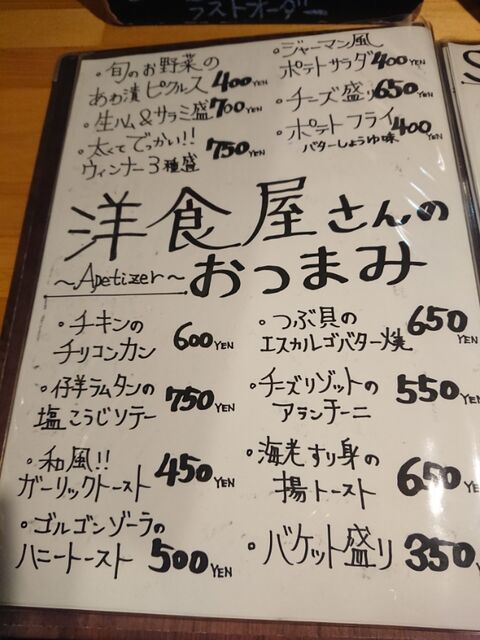 ラストオーダー
・旬のお野菜の
あわ漬ピクルス 400YEN
・生ハム&サラミ盛 700YEN
・太くてでっかい!!
ウィンナー3種盛 750YEN
・ジャーマン風
ポテトサラダ 400YEN
・チーズ盛り 650YEN
・ポテトフライ 400YEN
バターしょうゆ味
洋食屋さんの
〜Apetizer〜 おつまみ
・チキンの
チリコンカン 600YEN
・仔羊ラムタンの
塩こうじソテー 750YEN
・和風!!
ガーリックトースト 450YEN
・ゴルゴンゾーラの
ハニートースト 500YEN
・つぶ貝の
エスカルゴバター焼 650YEN
・チーズリゾットの
アランチーニ 550YEN
・海老すり身の
揚トースト 650YEN
・バケット盛り 350YEN
S